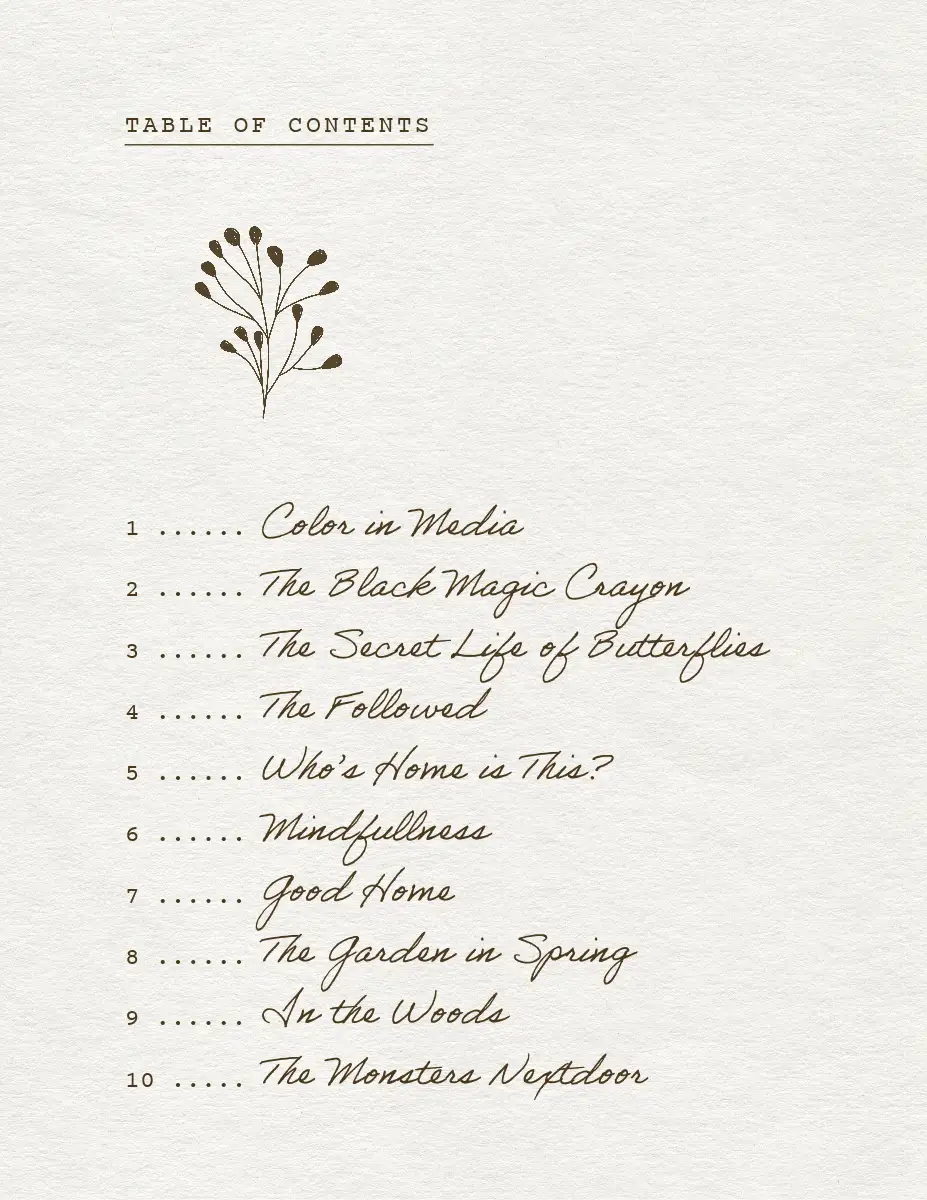 TABLE OF CONTENTS
1 ...... Color in Media
2 ...... The Black Magic Crayon
3 ...... The Secret Life of Butterflies
4 ...... The Followed
5 ...... Who's Home is This?
6 ...... Mindfullness
7 ...... Good Home
8 ...... The Garden in Spring
9 ...... In the Woods
10 ..... The Monsters Nextdoor